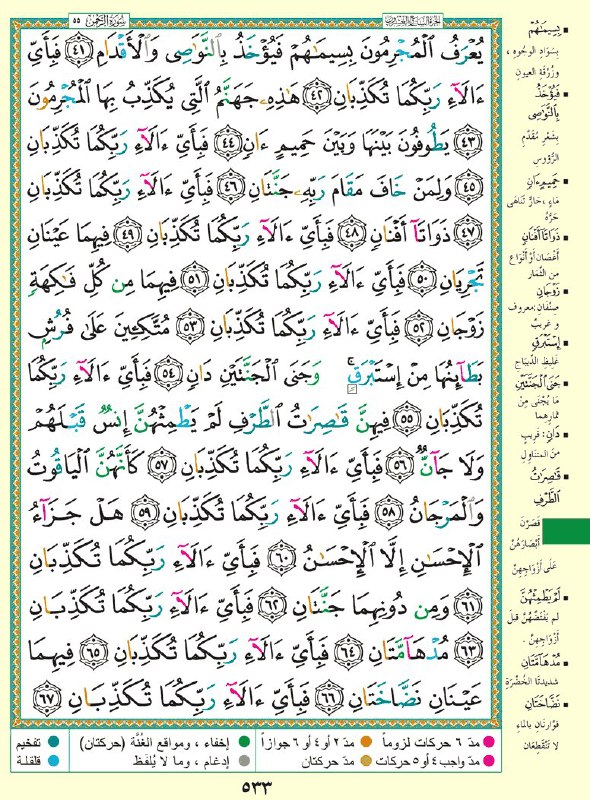 سُورَةُ الرَّحْمٰن ٥٥
يُعْرَفُ الْمُجْرِمُونَ بِسِيمَاهُمْ فَيُؤْخَذُ بِالنَّوَاصِي وَالْأَقْدَامِ ٤١ فَبِأَيِّ
ءَالَآءِ رَبِّكُمَا تُكَذِّبَانِ ٤٢ هَاذِهِ جَهَنَّمُ الَّتِي يُكَذِّبُ بِهَا الْمُجْرِمُونَ
٤٣ يَطُوفُونَ بَيْنَهَا وَبَيْنَ حَمِيمٍ ءَانٍ ٤٤ فَبِأَيِّ ءَالَآءِ رَبِّكُمَا تُكَذِّبَانِ
٤٥ وَلِمَنْ خَافَ مَقَامَ رَبِّهِ جَنَّتَانِ ٤٦ فَبِأَيِّ ءَالَآءِ رَبِّكُمَا تُكَذِّبَانِ
٤٧ ذَوَاتَآ أَفْنَانٍ ٤٨ فَبِأَيِّ ءَالَآءِ رَبِّكُمَا تُكَذِّبَانِ ٤٩ فِيهِمَا عَيْنَانِ
تَجْرِيَانِ ٥٠ فَبِأَيِّ ءَالَآءِ رَبِّكُمَا تُكَذِّبَانِ ٥١ فِيهِمَا مِن كُلِّ فَاكِهَةٍ
زَوْجَانِ ٥٢ فَبِأَيِّ ءَالَآءِ رَبِّكُمَا تُكَذِّبَانِ ٥٣ مُتَّكِـِٔينَ عَلَى فُرُشٍ
بَطَآئِنُهَا مِنْ إِسْتَبْرَقٍ ۚ وَجَنَى الْجَنَّتَيْنِ دَانٍ ٥٤ فَبِأَيِّ ءَالَآءِ رَبِّكُمَا
تُكَذِّبَانِ ٥٥ فِيهِنَّ قَاصِرَاتُ الطَّرْفِ لَمْ يَطْمِثْهُنَّ إِنسٌ قَبْلَهُمْ
وَلَا جَآنٌّ ٥٦ فَبِأَيِّ ءَالَآءِ رَبِّكُمَا تُكَذِّبَانِ ٥٧ كَأَنَّهُنَّ الْيَاقُوتُ
وَالْمَرْجَانُ ٥٨ فَبِأَيِّ ءَالَآءِ رَبِّكُمَا تُكَذِّبَانِ ٥٩ هَلْ جَزَآءُ
الْإِحْسَانِ إِلَّا الْإِحْسَانُ ٦٠ فَبِأَيِّ ءَالَآءِ رَبِّكُمَا تُكَذِّبَانِ
٦١ وَمِن دُونِهِمَا جَنَّتَانِ ٦٢ فَبِأَيِّ ءَالَآءِ رَبِّكُمَا تُكَذِّبَانِ
٦٣ مُدْهَآمَّتَانِ ٦٤ فَبِأَيِّ ءَالَآءِ رَبِّكُمَا تُكَذِّبَانِ ٦٥ فِيهِمَا
عَيْنَانِ نَضَّاخَتَانِ ٦٦ فَبِأَيِّ ءَالَآءِ رَبِّكُمَا تُكَذِّبَانِ ٦٧
بِسِيمَاهُمْ
بِسَوَادِ الوُجُوهِ
وَزُرْقَةِ العيونِ
فَيُؤْخَذُ
بِالنَّوَاصِي
بِشَعْرِ مُقَدَّمِ
الرُّؤُوسِ
حَمِيمٍ ءَانٍ
مَاءٍ حَارٍّ تَنَاهَى
حَرُّهُ
ذَوَاتَا أَفْنَانٍ
أَغْصَانٍ أَوْ أَنْوَاعٍ
من الثِّمَارِ
زَوْجَانِ
صِنْفَانِ : معروف
و غريبٌ
إِسْتَبْرَقٍ
غليظ الدِّيباج
جَنَى الْجَنَّتَيْنِ
مَا يُجْنَى مِنْ
ثمارِهما
دَانٍ : قريبٌ
منَ المتناوِل
قَاصِرَاتُ
الطَّرْفِ
قَصَرْنَ
أَبْصَارَهُنَّ
عَلَى أَزْوَاجِهِنَّ
لَمْ يَطْمِثْهُنَّ
لم يفْتَضَّهُنَّ قبلَ
أزواجِهِنّ
مُدْهَامَّتَانِ
شديدتَا الخُضْرَة
نَضَّاخَتَانِ
فوَّارتانِ بالماءِ
لا تَنْقَطِعَان
مدّ ٦ حركات لزوماً مدّ ٢ أو ٤ أو ٦ جوازاً إخفاء ، ومواقع الغُنَّة (حركتان) تفخيم
مدّ واجب ٤ أو ٥ حركات مدّ حركتان إدغام ، وما لا يُلفَظ قلقلة
٥٣٣